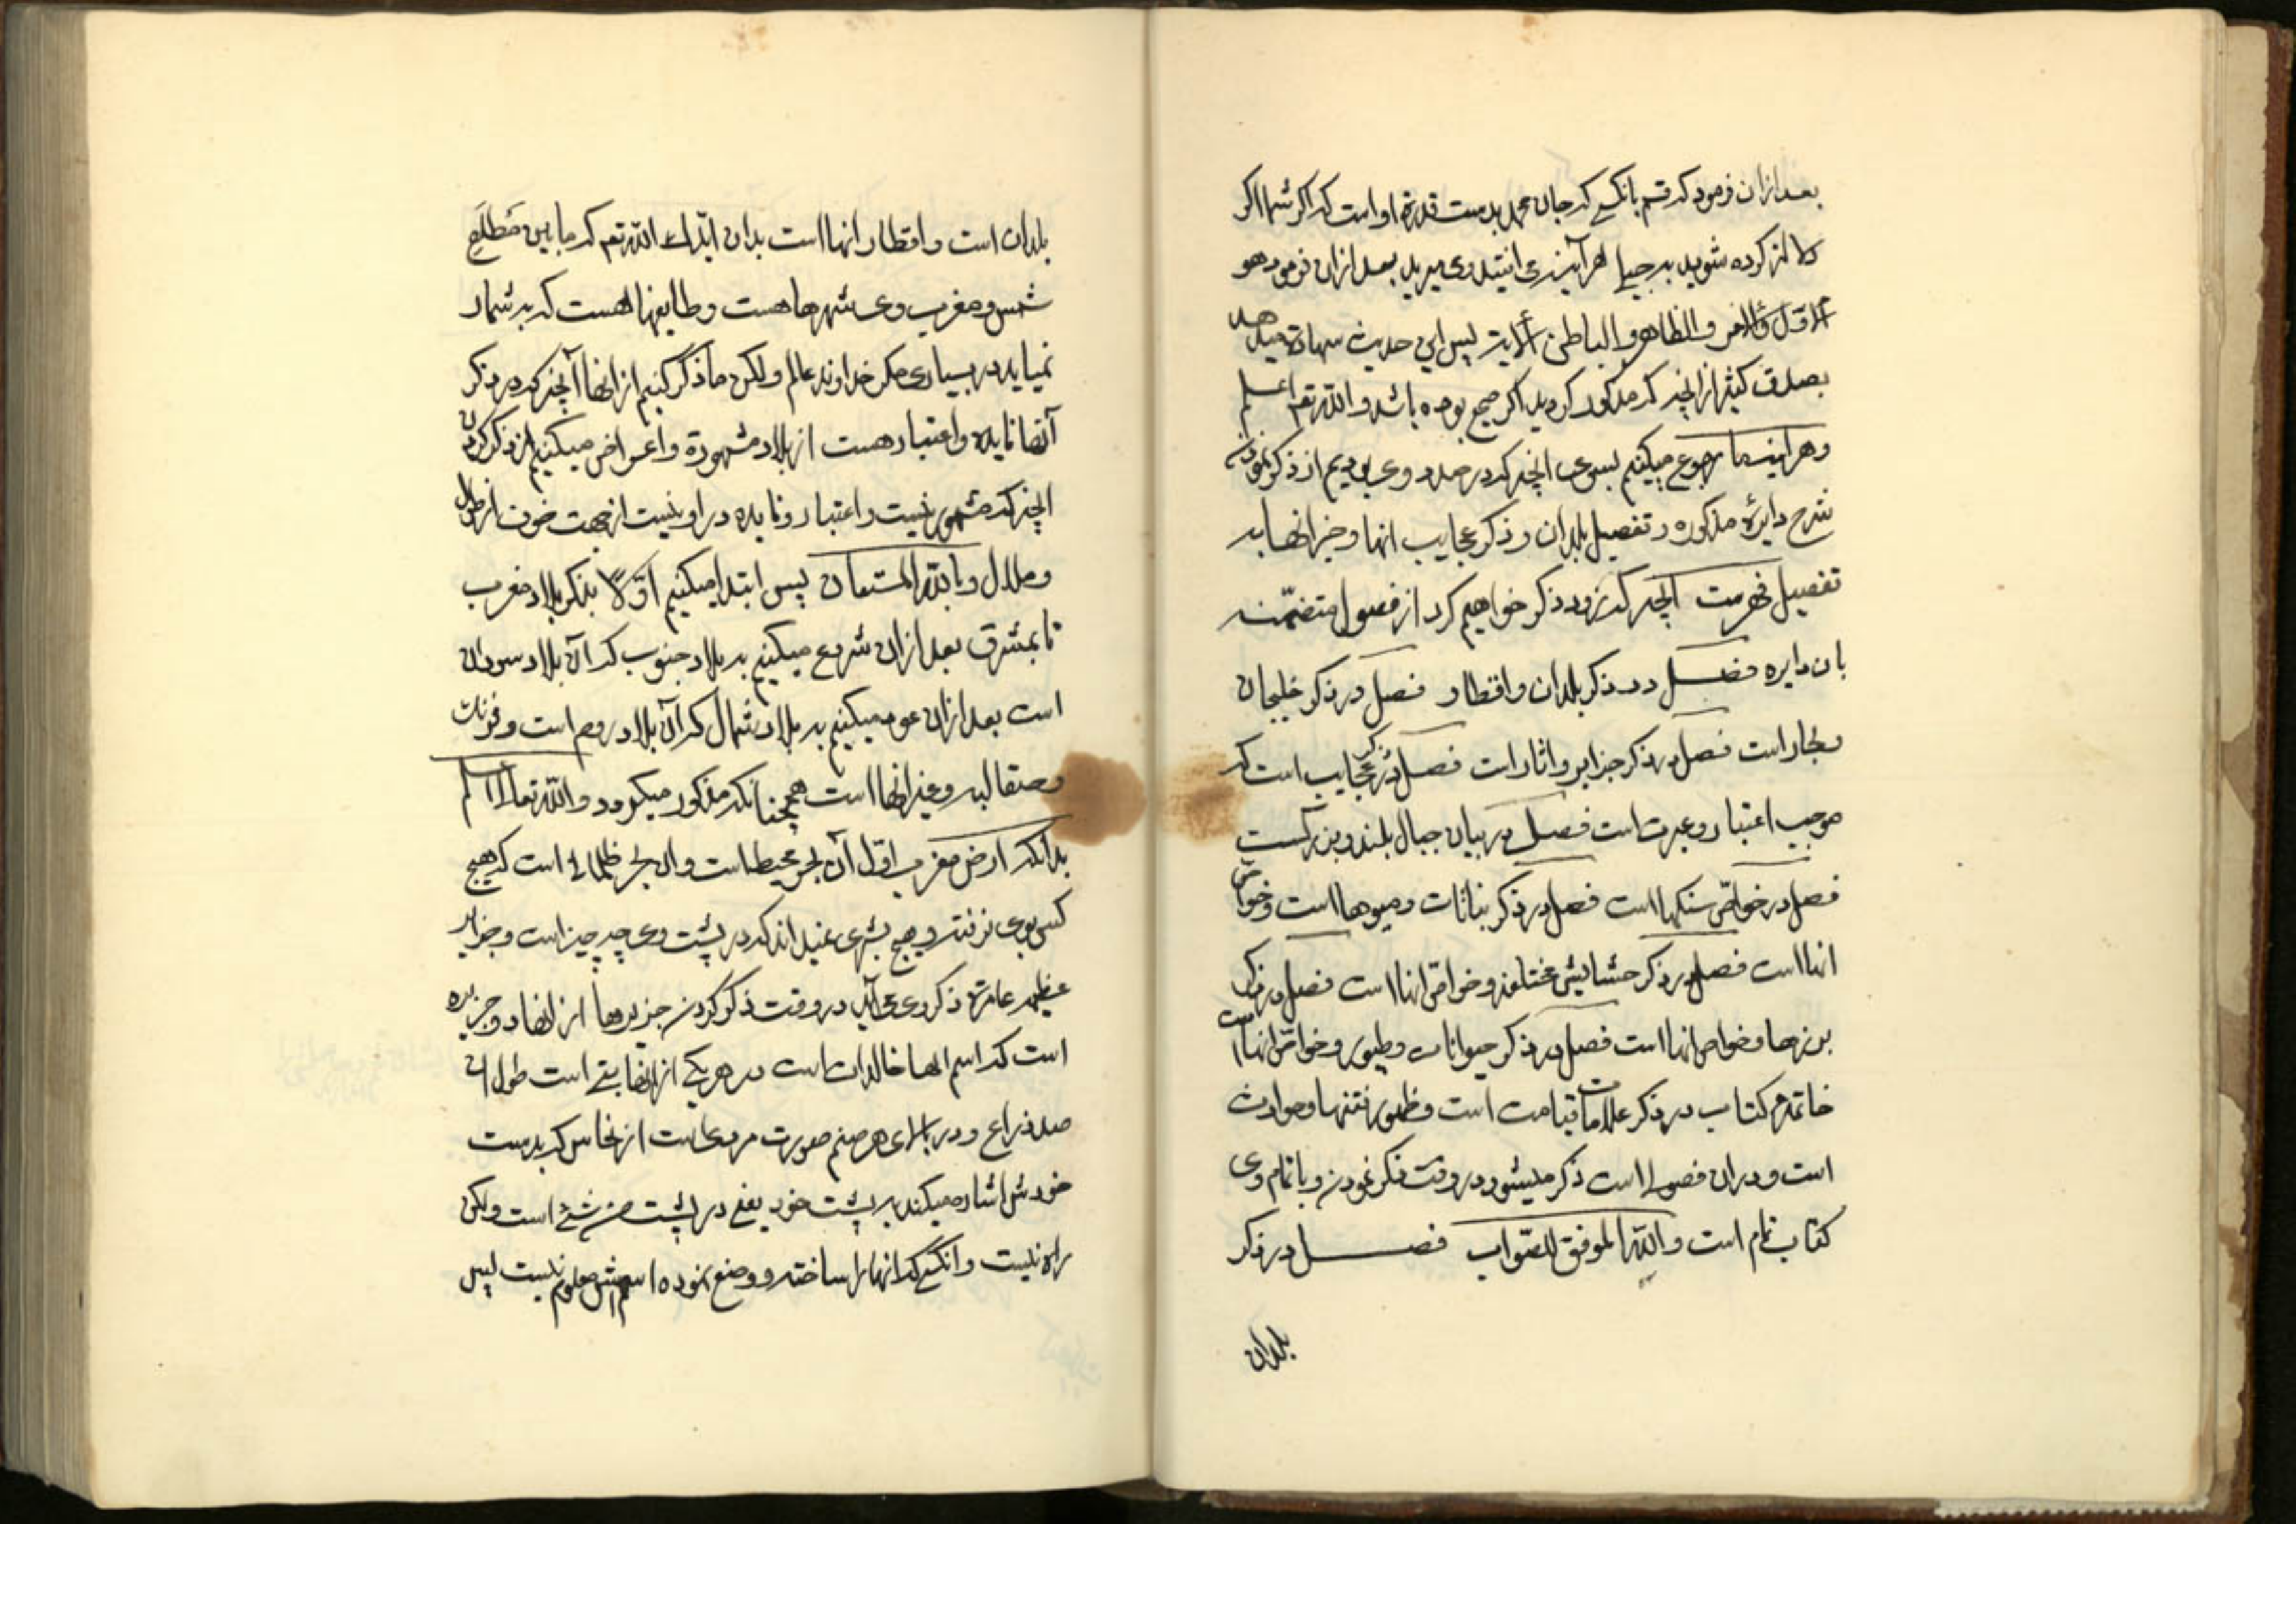 بعد ازان فرمود که قسم بانکسی که جان محمد بدست قدرة او است که اکر شما اکر
کرده شوید بر حبلی هر آینه می افتید وی میرید بعد ازان فرمود هو
الاول والاخر والظاهر والباطن الایة پس این حدیث شهادة میدهد
بصدق کثیر از انچه که مذکور کردید اکر صحیح بوده باشد والله تعم اعلم
و هر اینه ما رجوع میکنیم بسوی انچه که در صدد وی بودیم از ذکر نمودن
شرح دایرهٔ مذکوره و تفصیل بلدان و ذکر عجایب انها و جز انها بد
تفصیل فهرست انچه که زود ذکر خواهیم کرد از فصول متضمّنه
بان دایره فصل در ذکر بلدان واقطار فصل در ذکر خلیجان
وبحار است فصل در ذکر جزایر واثار است فصل در ذکر عجایب است که
موجب اعتبار وعبرت است فصل در بیان جبال بلند وبزرکست
فصل در خواصّ سنکها است فصل در ذکر نباتات ومیوها است وخواص
انها است فصل در ذکر حشایش مختلفه وخواصّ انها است فصل در ذکر
بزرها وخواص انها است فصل در ذکر حیوانات وطیور وخواصّ انها است
خاتمه کتاب در ذکر علامات قیامت است وظهور فتنها وحوادث
است ودران فصولی است ذکر میشود در وقت ذکر نمودن وباتمام وی
کتاب تمام است والله الموفق للصّواب فصل در ذکر
بلدان
بلدان است واقطار انها است بدان ایّدک الله تعم که ما بین مَطلَعِ
شمس ومغرب وی شهرها هست وطایفها هست که بشمار
نمیاید در بسیاری مکر خداوند عالم ولکن ما ذکر کنیم از انها آنچه که در ذکر
آنها فایده واعتبار هست از بلاد مشهورة واعراض میکنیم از ذکر کردن
انچه که مشهور نیست واعتبار وفایده در او نیست از جهت خوف از طول
وملال وبالله المستعان پس ابتدا میکنیم اوّلاً بذکر بلاد مغرب
تا بمشرق بعد ازان شروع میکنیم به بلاد جنوب که آن بلاد سودان
است بعد ازان عود میکنیم به بلاد شمال که آن بلاد روم است وفرنك
وصقالبه وغیر انها است همچنانکه مذکور میکردد والله تعالی اعلم
بدانکه ارض مغرب اوّل آن بحر محیط است وان بحر ظلمانی است که هیچ
کسی بوی نرفته وهیچ بشری نمیداند که در پشت وی چه چیز است وجزایر
عظیمه عامرة ذکر وی می آید در وقت ذکر کردن جزیرها از انها دو جزیره
است که اسم انها خالدات است در هر یکی از انها بتی است طول ان
صد ذراع ودر بالای هر صنم صورت مردی است از نحاس که بدست
خودش اشاره میکند به پشت خود یعنی در پشت من شئ است ولکن
راه نیست وانکسی که انها را ساخته ووضع نموده اسمش معلوم نیست پس